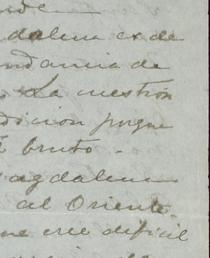 de
dalena ex de
ndancia de
. La cuestion
dicion porque
bruto.
agdalena
al Oriente.
ne cree dificil